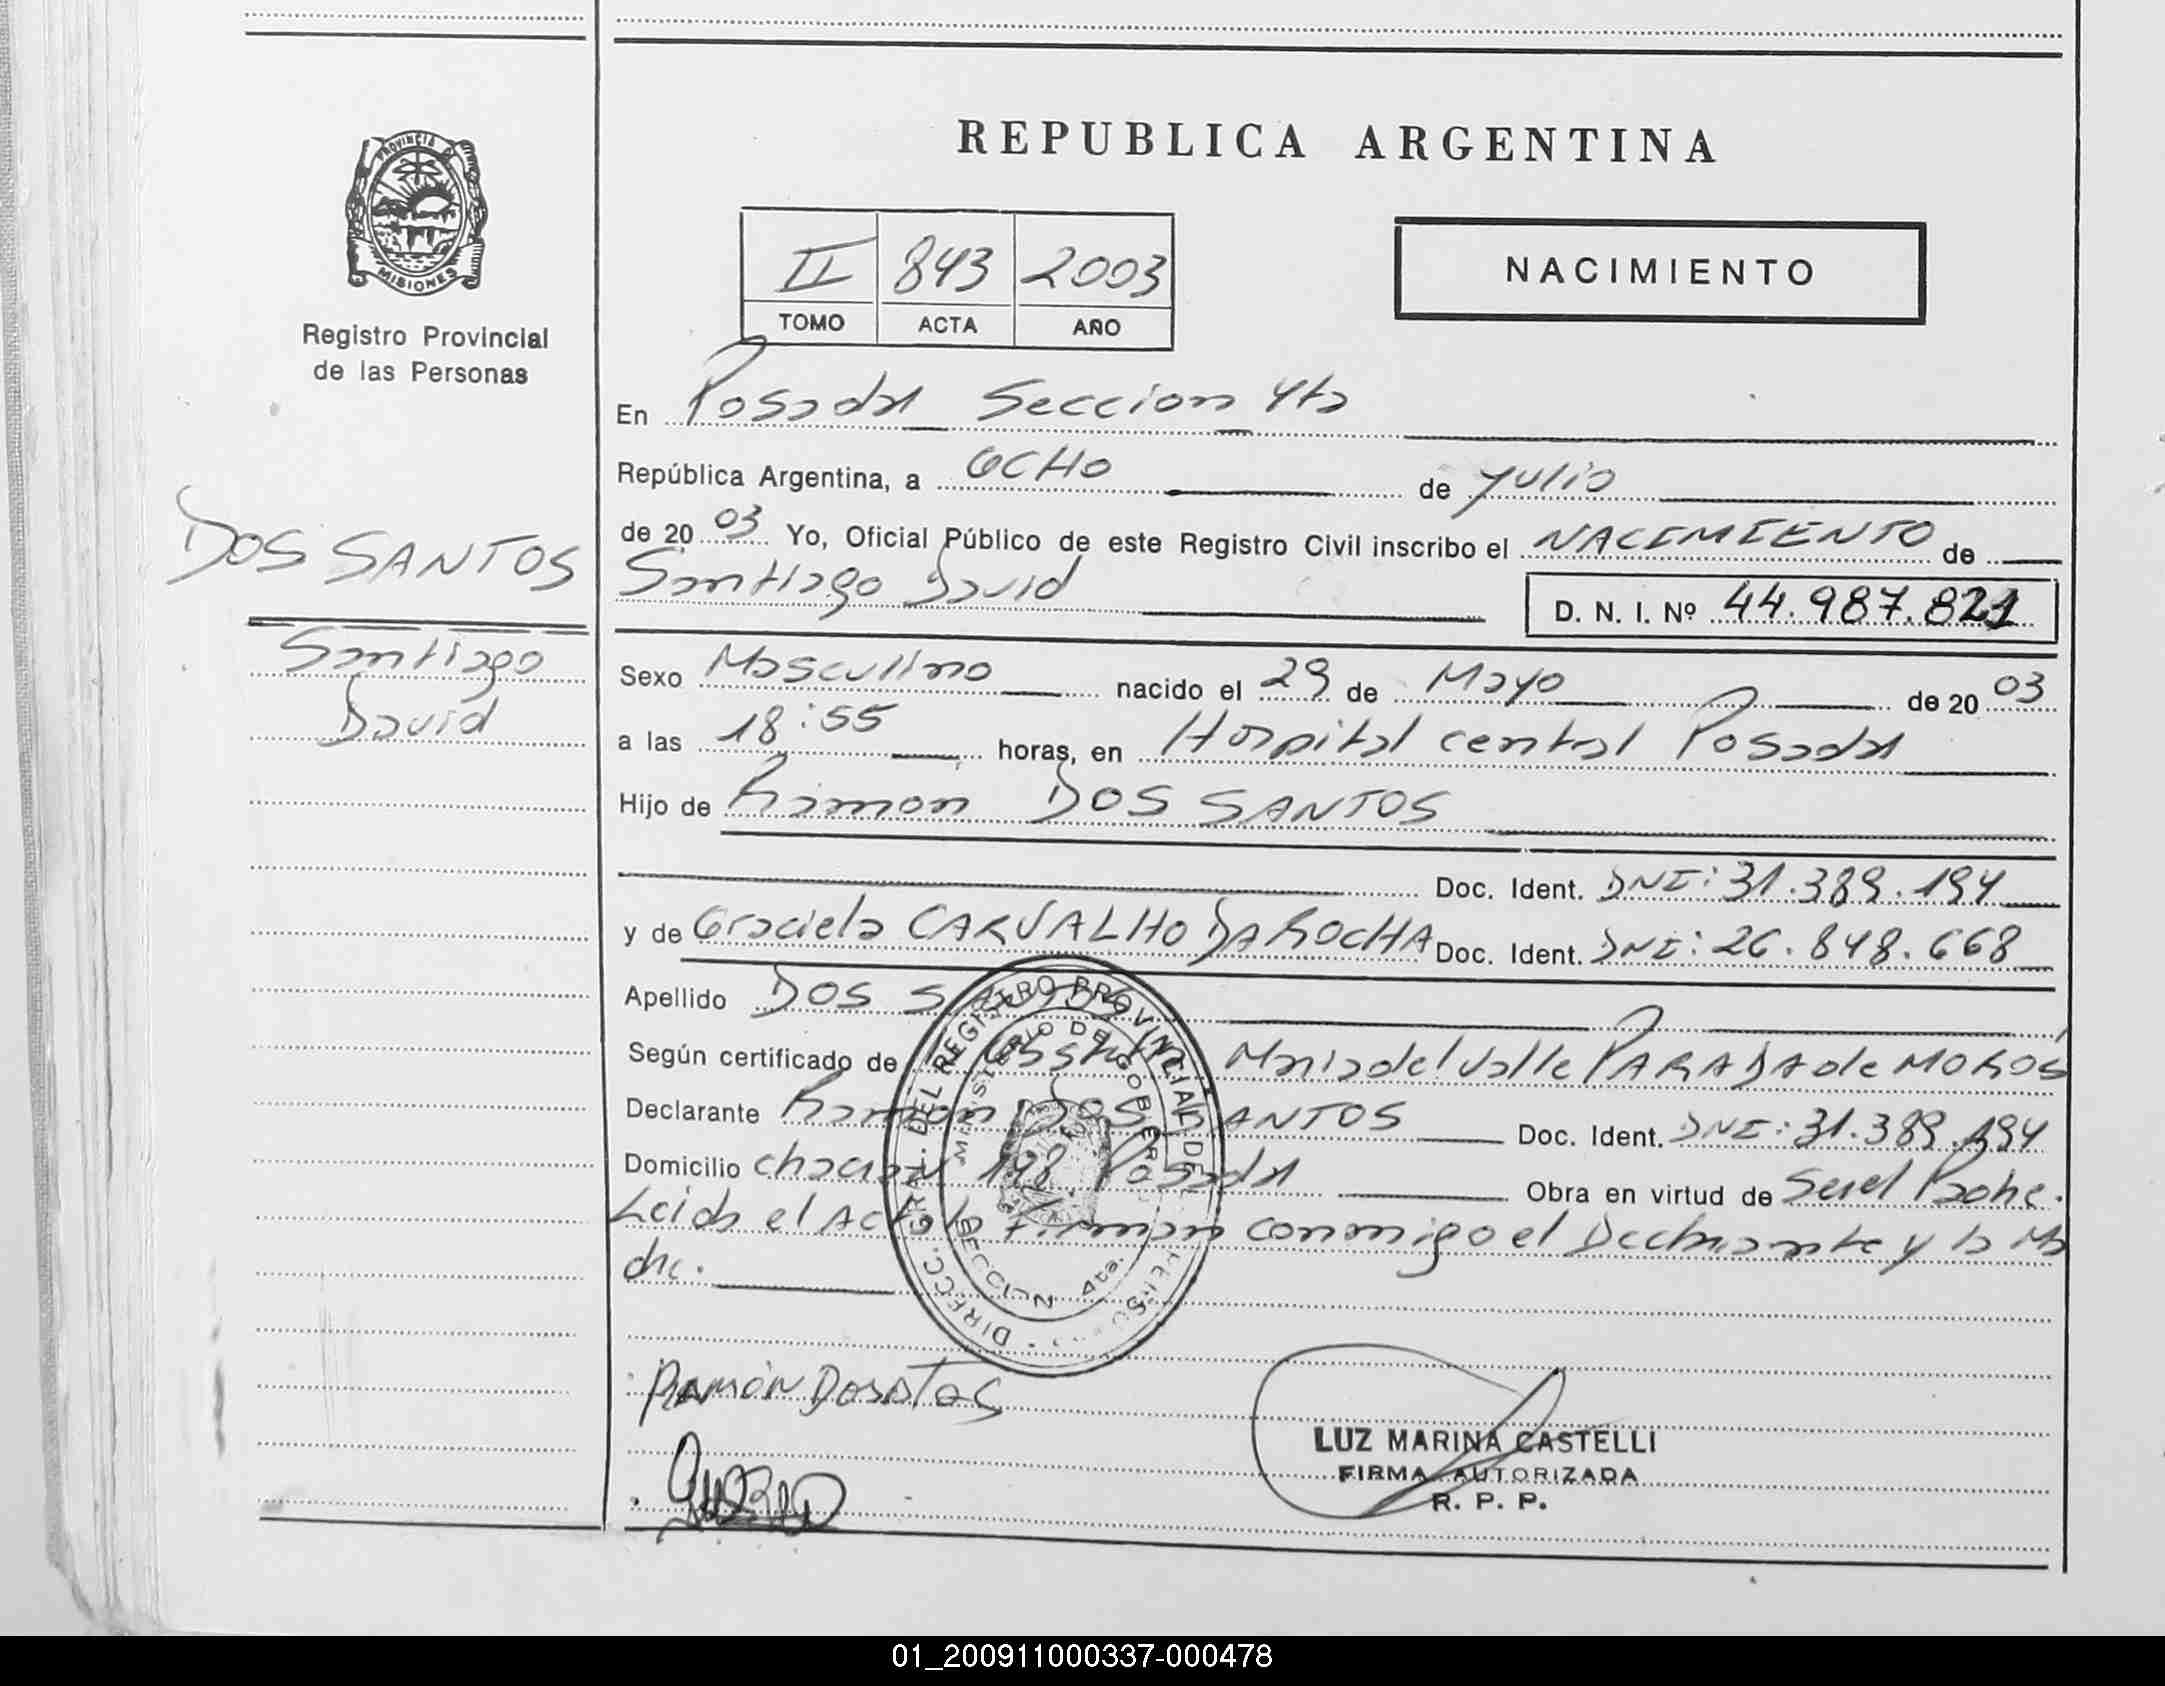 REPUBLICA ARGENTINA
PROVINCIA DE
MISIONES
Registro Provincial
de las Personas
II 843 2003
TOMO ACTA AÑO
NACIMIENTO
DOS SANTOS
Santiago
David
En Posadas Seccion 4ta
República Argentina, a OCHO de Julio
de 20 03 Yo, Oficial Público de este Registro Civil inscribo el NACIMIENTO de
Santiago David
D. N. I. Nº 44.987.821
Sexo Masculino nacido el 29 de Mayo de 20 03
a las 18:55 horas, en Hospital central Posadas
Hijo de Ramon DOS SANTOS
Doc. Ident. DNI: 31.389.194
y de Graciela CARVALHO DA ROCHA Doc. Ident. DNI: 26.848.668
Apellido DOS SANTOS
Según certificado de Maria del Valle PARADA de MOROS
Declarante Ramon DOS SANTOS Doc. Ident. DNI: 31.389.194
Domicilio chacra 198 Posadas Obra en virtud de Ser el Padre.
Leida el Acta la Firman conmigo el Declarante y la Ma
dre.
DIRECC. GRAL. DEL REGISTRO PROVINCIAL DE
MINISTERIO DE GOBIERNO
SECCION 4ta.
RAMÓN
LUZ MARINA CASTELLI
FIRMA AUTORIZADA
R. P. P.
01_200911000337-000478